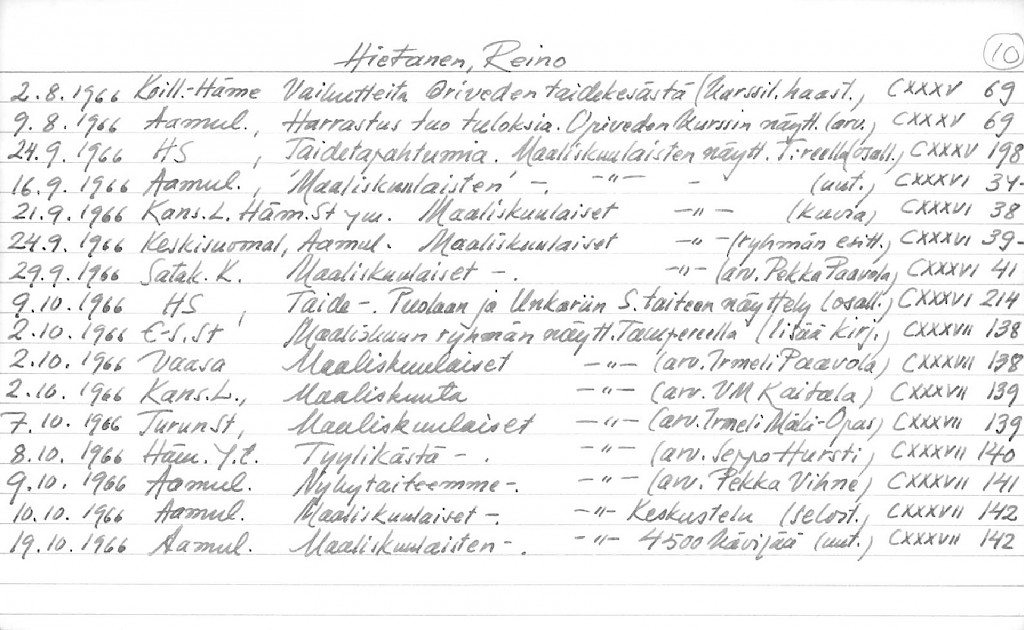 Hietanen, Reino 10
2.8.1966 Koill.-Häme Vaikutteita Oriveden taidekesästä (Kurssil. haast., CXXXV 69
9.8.1966 Aamul., Harrastus tuo tuloksia. Opiveden Kurssin näytt. (arv.) CXXXV 69
24.9.1966 HS, Taidetapahtumia. Maaliskuulaisten näytt. T:reella (osall., CXXXV 198
16.9.1966 Aamul., 'Maaliskuulaisten' -. -"- - (uut.), CXXXVI 34-
21.9.1966 Kans.L. Häm.St ym. Maaliskuulaiset -"- (kuvia) CXXXVI 38
24.9.1966 Keskisuomal, Aamul. Maaliskuulaiset -"- (ryhmän esitt.) CXXXVI 39-
29.9.1966 Satak. K. Maaliskuulaiset -. -"- (arv. Pekka Paavola) CXXXVI 41
9.10.1966 HS, Taide -. Puolaan ja Unkariin S. taiteen näyttely (osall.) CXXXVI 214
2.10.1966 E-S.St Maaliskuun ryhmän näytt. Tampereella (lisää kirj.) CXXXVII 138
2.10.1966 Vaasa Maaliskuulaiset -"- (arv. Irmeli Paavola) CXXXVII 138
2.10.1966 Kans.L., Maaliskuuta -"- (arv. VM Kaitala) CXXXVII 139
7.10.1966 TurunSt, Maaliskuulaiset -"- (arv. Irmeli Mäki-Opas) CXXXVII 139
8.10.1966 Häm. Yl. Tyylikästä -. -"- (arv. Seppo Hursti, CXXXVII 140
9.10.1966 Aamul. Nykytaiteemme -. -"- (arv. Pekka Vihne) CXXXVII 141
10.10.1966 Aamul. Maaliskuulaiset -. -"- Keskustelu (selost., CXXXVII 142
19.10.1966 Aamul. Maaliskuulaisten -. -"- 4500 kävijää (uut.) CXXXVII 142